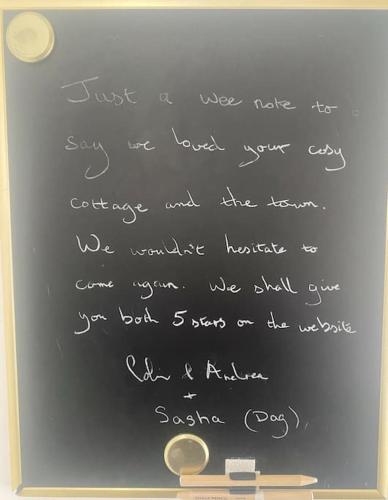 Just a wee note to
say we loved your cosy
cottage and the town.
We wouldn't hesitate to
come again. We shall give
you both 5 stars on the website
& Andrea
+
Sasha (Dog)